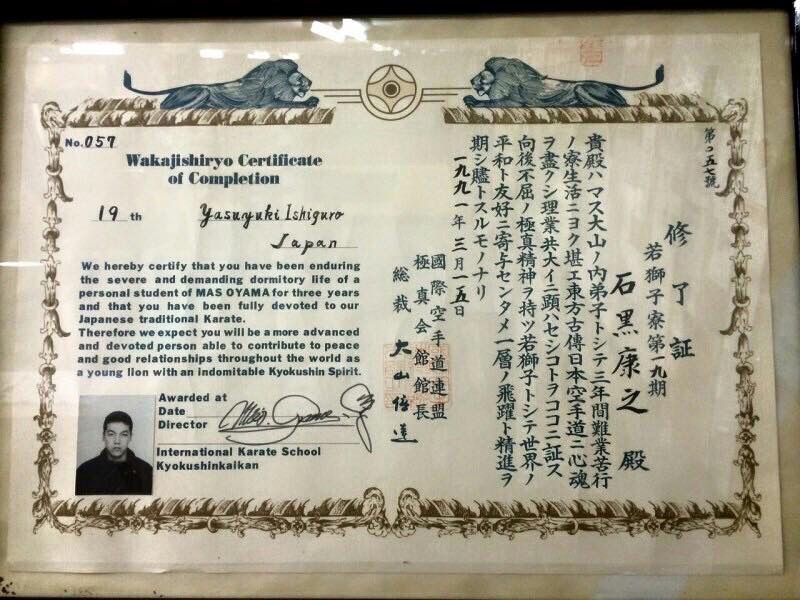 No. 057
Wakajishiryo Certificate
of Completion
19 th Yasuyuki Ishiguro
Japan
We hereby certify that you have been enduring
the severe and demanding dormitory life of a
personal student of MAS OYAMA for three years
and that you have been fully devoted to our
Japanese traditional Karate.
Therefore we expect you will be a more advanced
and devoted person able to contribute to peace
and good relationships throughout the world as
a young lion with an indomitable Kyokushin Spirit.
Awarded at
Date
Director
International Karate School
Kyokushinkaikan
第〇五七號
修了証
若獅子寮第一九期
石黒康之殿
貴殿ハマス大山ノ内弟子トシテ三年間難業苦行
ノ寮生活ニヨク堪エ東方古傳日本空手道ニ心魂
ヲ盡クシ理業共大イニ顕ハセシコトヲココニ証ス
向後不屈ノ極真精神ヲ持ツ若獅子トシテ世界ノ
平和ト友好ニ寄与センタメ一層ノ飛躍ト精進ヲ
期シ贐トスルモノナリ
一九九一年三月一五日
國際空手道連盟
極真会館館長
総裁 大山倍達